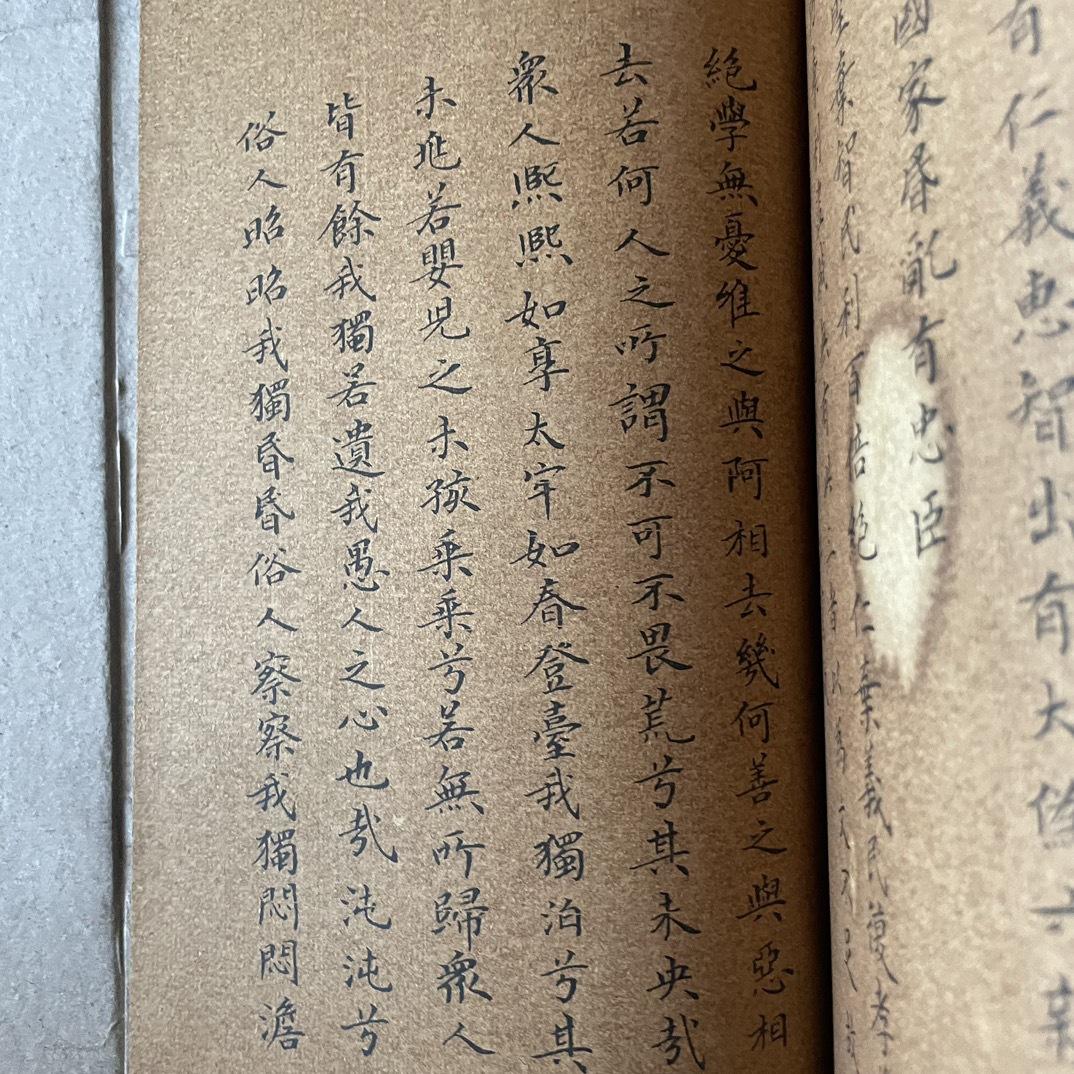 有仁義惠智出有大偽六親
國家昏亂有忠臣
棄智民利百倍絕仁棄義民復孝
絕學無憂維之與阿相去幾何善之與惡相
去若何人之所謂不可不畏荒兮其未央哉
眾人熙熙如享太牢如春登臺我獨泊兮其
未兆若嬰兒之未孩乘乘兮若無所歸眾人
皆有餘我獨若遺我愚人之心也哉沌沌兮
俗人昭昭我獨昏昏俗人察察我獨悶悶澹